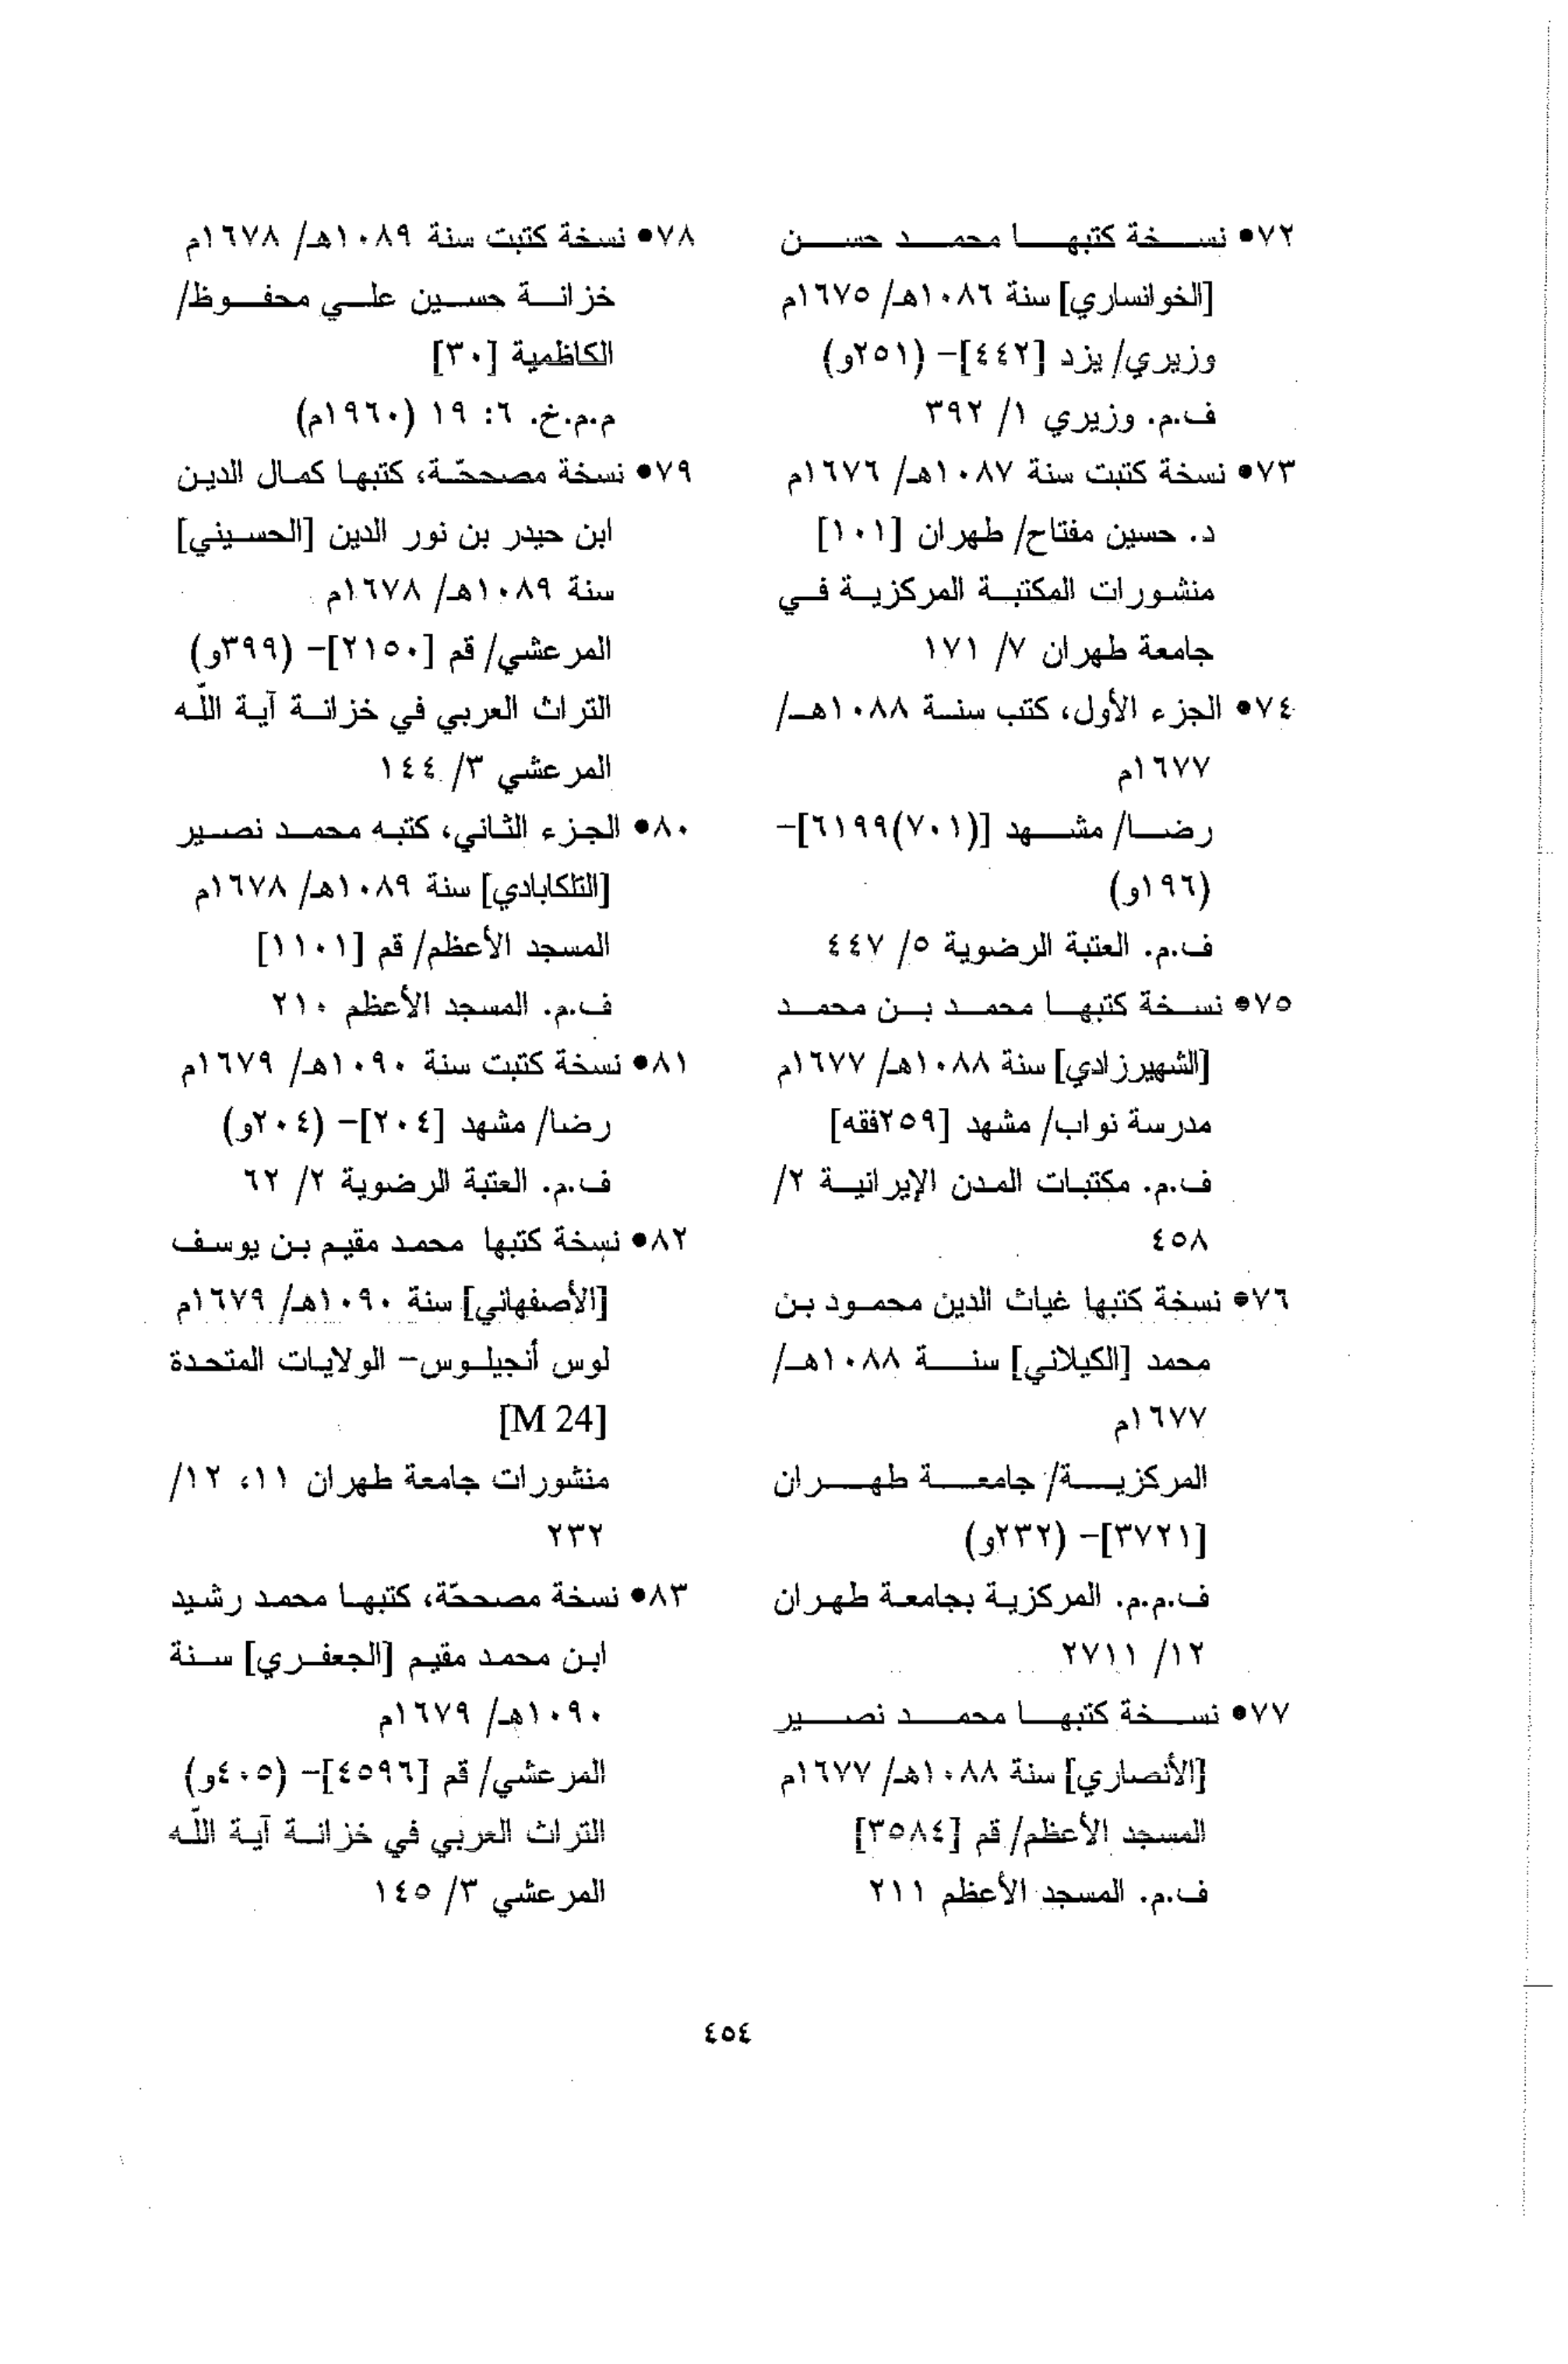 ٧٢● نسخة كتبها محمد حسن
[الخوانساري] سنة ١٠٨٦هـ/ ١٦٧٥م
وزيري/ يزد [٤٤٢]- (٢٥١و)
ف.م. وزيري ١/ ٣٩٢
٧٣● نسخة كتبت سنة ١٠٨٧هـ/ ١٦٧٦م
د. حسين مفتاح/ طهران [١٠١]
منشورات المكتبة المركزية في
جامعة طهران ٧/ ١٧١
٧٤● الجزء الأول، كتب سنة ١٠٨٨هـ/
١٦٧٧م
رضا/ مشهد [(٧٠١)٦١٩٩]-
(١٩٦و)
ف.م. العتبة الرضوية ٥/ ٤٤٧
٧٥● نسخة كتبها محمد بن محمد
[الشهيرزادي] سنة ١٠٨٨هـ/ ١٦٧٧م
مدرسة نواب/ مشهد [٢٥٩فقه]
ف.م. مكتبات المدن الإيرانية ٢/
٤٥٨
٧٦● نسخة كتبها غياث الدين محمود بن
محمد [الكيلاني] سنة ١٠٨٨هـ/
١٦٧٧م
المركزية/ جامعة طهران
[٣٧٢١]- (٢٣٢و)
ف.م.م. المركزية بجامعة طهران
١٢/ ٢٧١١
٧٧● نسخة كتبها محمد نصير
[الأنصاري] سنة ١٠٨٨هـ/ ١٦٧٧م
المسجد الأعظم/ قم [٣٥٨٤]
ف.م. المسجد الأعظم ٢١١
٧٨● نسخة كتبت سنة ١٠٨٩هـ/ ١٦٧٨م
خزانة حسين علي محفوظ/
الكاظمية [٣٠]
م.م.خ. ٦: ١٩ (١٩٦٠م)
٧٩● نسخة مصححّة، كتبها كمال الدين
ابن حيدر بن نور الدين [الحسيني]
سنة ١٠٨٩هـ/ ١٦٧٨م
المرعشي/ قم [٢١٥٠]- (٣٩٩و)
التراث العربي في خزانة آية اللّه
المرعشي ٣/ ١٤٤
٨٠● الجزء الثاني، كتبه محمد نصير
[التلكابادي] سنة ١٠٨٩هـ/ ١٦٧٨م
المسجد الأعظم/ قم [١١٠١]
ف.م. المسجد الأعظم ٢١٠
٨١● نسخة كتبت سنة ١٠٩٠هـ/ ١٦٧٩م
رضا/ مشهد [٢٠٤]- (٢٠٤و)
ف.م. العتبة الرضوية ٢/ ٦٢
٨٢● نسخة كتبها محمد مقيم بن يوسف
[الأصفهاني] سنة ١٠٩٠هـ/ ١٦٧٩م
لوس أنجيلوس- الولايات المتحدة
[M 24]
منشورات جامعة طهران ١١، ١٢/
٢٣٢
٨٣● نسخة مصححّة، كتبها محمد رشيد
ابن محمد مقيم [الجعفري] سنة
١٠٩٠هـ/ ١٦٧٩م
المرعشي/ قم [٤٥٩٦]- (٤٠٥و)
التراث العربي في خزانة آية اللّه
المرعشي ٣/ ١٤٥
٤٥٤